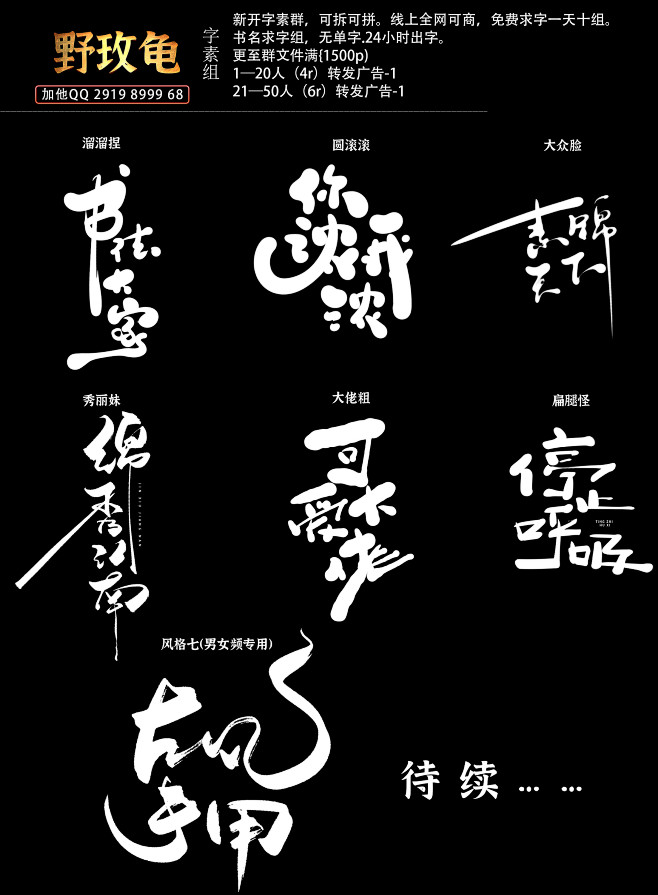 野玫龟
字素组
加他QQ 2919 8999 68
新开字素群，可拆可拼。线上全网可商，免费求字一天十组。
书名求字组，无单字.24小时出字。
更至群文件满{1500p)
1—20人（4r）转发广告-1
21—50人（6r）转发广告-1
溜溜捏
圆滚滚
大众脸
书法大家
秀丽妹
大佬粗
扁腿怪
绵秀江南
可爱大佬
停止呼吸
TING ZHI
HU XI
风格七(男女频专用)
古风专用
待续... ...